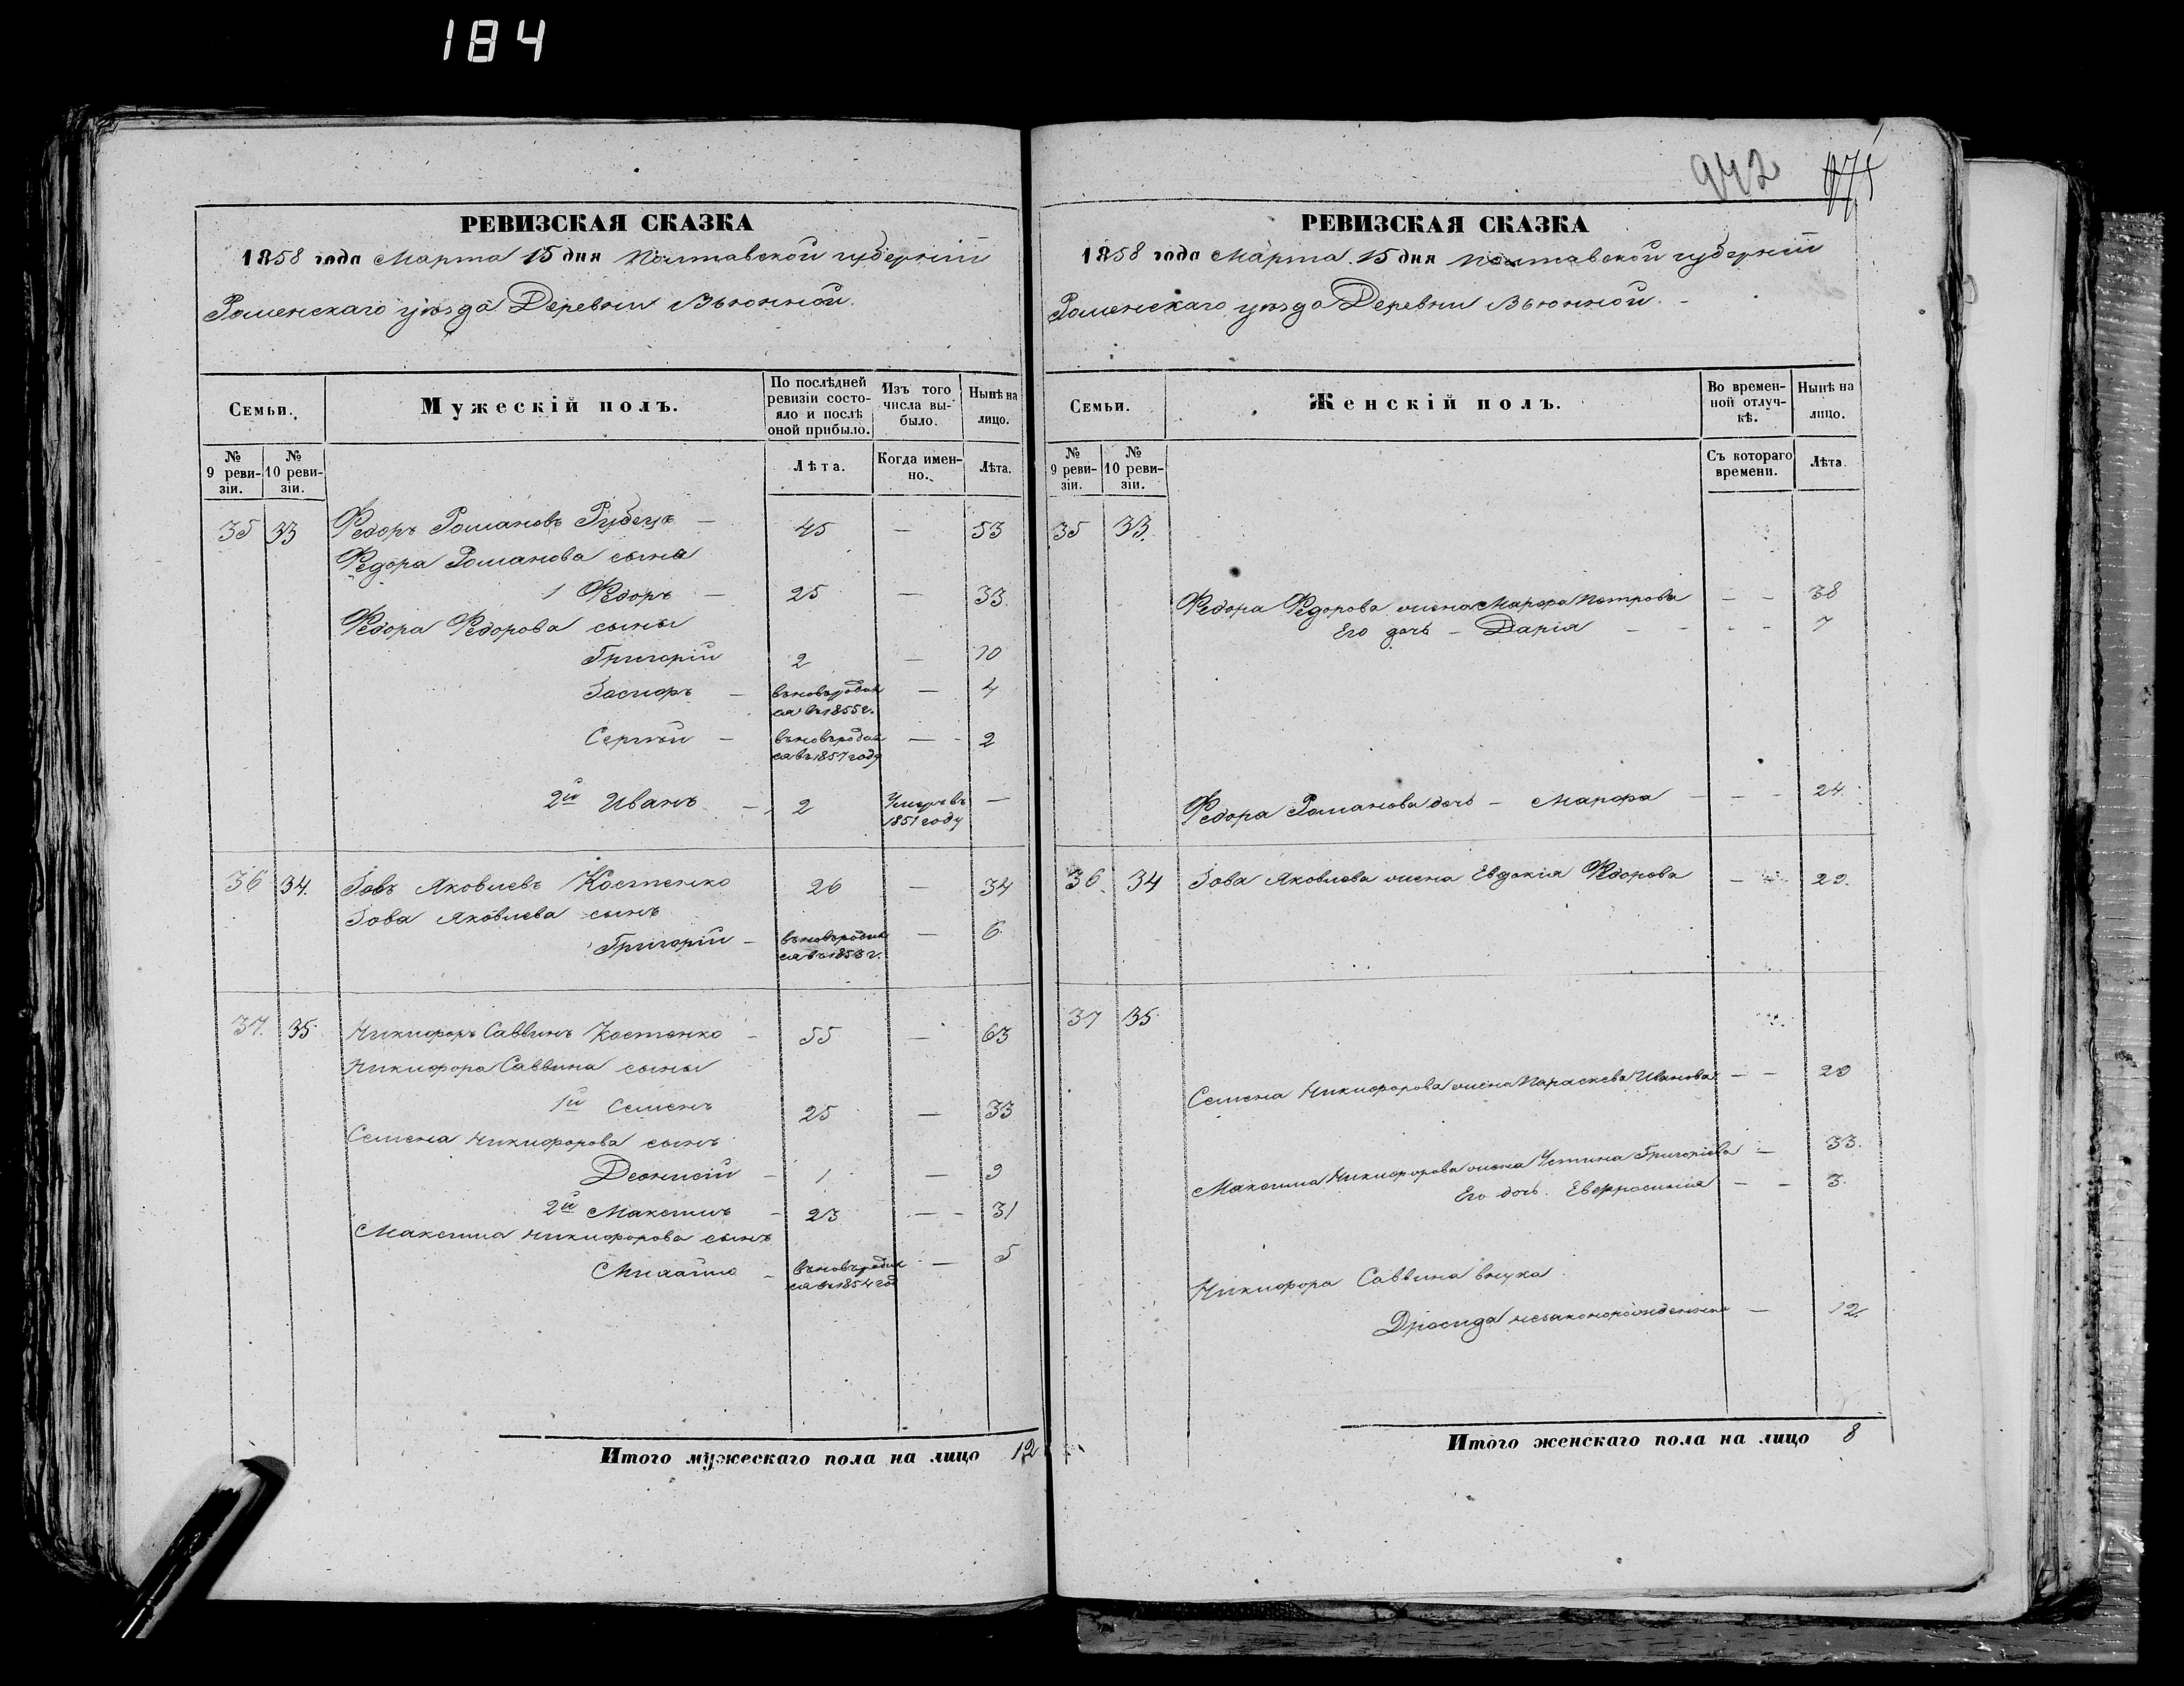 184
942 975
РЕВИЗСКАЯ СКАЗКА
1858 года Марта 15 дня Полтавской губерніи
Роменскаго уѣзда Деревни Вьюнной.
Семьи.
Мужескій полъ.
По послѣдней ревизіи состояло и послѣ оной прибыло.
Изъ того числа выбыло.
Нынѣ на лицо.
№ 9 ревизіи.
№ 10 ревизіи.
Лѣта.
Когда именно.
Лѣта.
35 33 Федоръ Романовъ Рубецъ — 45 — 53
Федора Романова сына
1 Федоръ — 25 — 33.
Федора Федорова сыны
Григорій 2 — 10
— — 4
вновь родился въ 1855 г.
Сергѣй — вновь родил — 2
ся въ 1857 году
2й Иванъ — 2 Умеръ въ —
1851 году
36 34. Іовъ Яковлевъ Костенко 26 — 34
Іова Яковлева сынъ
Григорій — вновь родил — 6
ся въ 1853 г.
37. 35. Никифоръ Саввинъ Костенко — 55 — 63
Никифора Саввина сыны
1й Семенъ 25 — 33
Семена Никифорова сынъ
Деонисій — 1 — 9
2й Максимъ — 23 — 31
Максима Никифорова сынъ
Михайло — вновь родил — 5
ся въ 1854 год
Итого мужескаго пола на лицо 12
РЕВИЗСКАЯ СКАЗКА
1858 года Марта 15 дня Полтавской губерніи
Роменскаго уѣзда Деревни Вьюнной. —
Семьи.
Женскій полъ.
Во временной отлучкѣ.
Нынѣ на лицо.
№ 9 ревизіи.
№ 10 ревизіи.
Съ котораго времени.
Лѣта.
35 33.
Федора Федорова жена Марфа Петрова — — 38
Его дочь — Дарія — — — — 7
Федора Романова дочь — Марфа — — — 24.
36. 34 Іова Яковлева жена Евдокія Федорова — 29.
37 35
Семена Никифорова жена Параскева Иванова — — 29
Максима Никифорова жена Устина Григоріева — 33.
Его дочь. Евфросинія — — 3.
Никифора Саввина внука
Дросида незаконорожденная — 12.
Итого женскаго пола на лицо 8